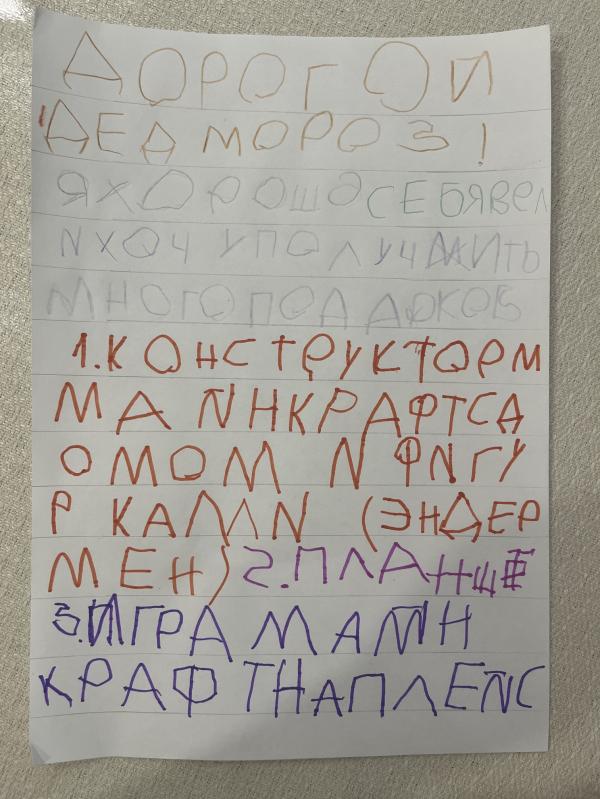 ДОРОГОЙ
ДЕД МОРОЗ!
Я ХОРОШО СЕБЯ ВЕЛ
И ХОЧУ ПОЛУЧИТЬ
МНОГО ПОДАРКОВ
1. КОНСТРУКТОР М
МАЙНКРАФТ С А
ОМОМ И ФИГУ
Р КАМИ (ЭНДЕР
МЕН) 2. ПЛАНШЕ
3. ИГРА МАЙН
КРАФТ НА ПЛЕЙС